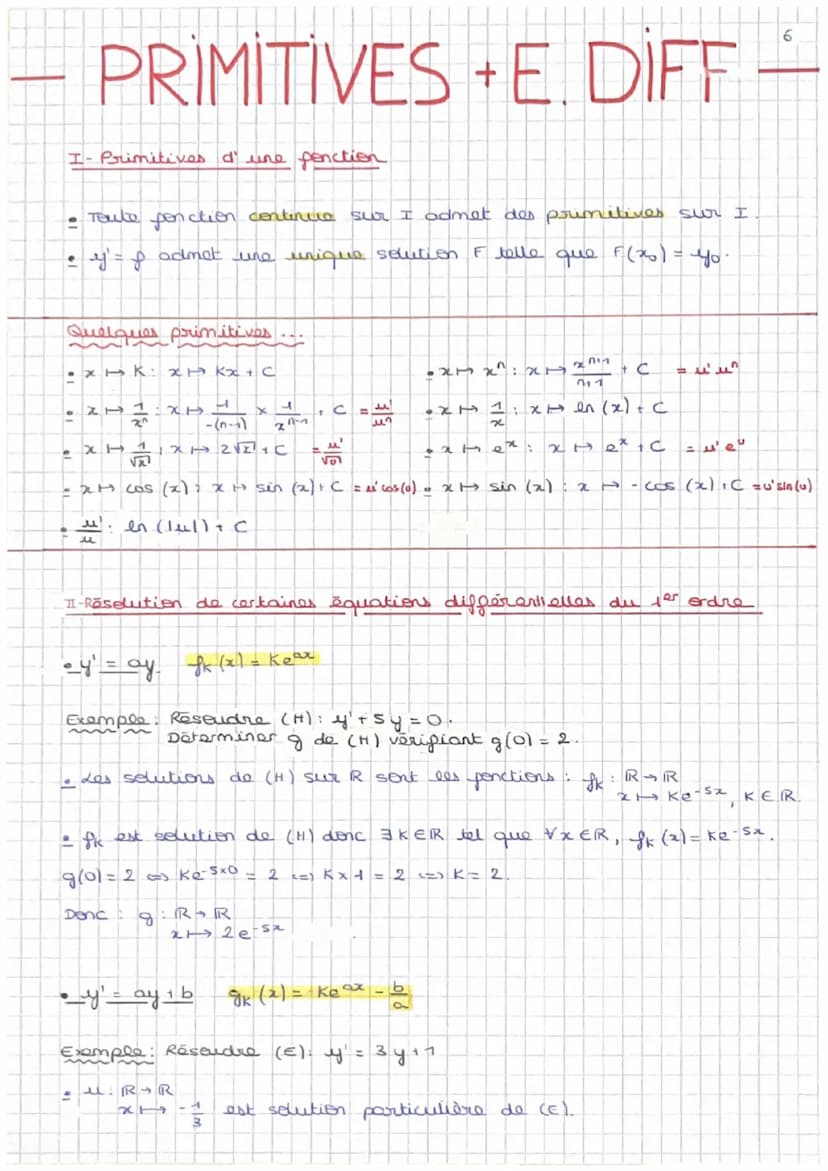 6
— PRIMITIVES + E. DIFF —
I - Primitives d'une fonction
• Toute fonction continue sur I admet des primitives sur I.
• y' = f admet une unique solution F telle que F(x₀) = y₀.
Quelques primitives ...
• x ↦ K : x ↦ Kx + C
• x ↦ xⁿ : x ↦ xⁿ⁺¹/(n+1) + C = u'uⁿ
• x ↦ 1/xⁿ : x ↦ -1/-(n-1) × -1/xⁿ⁻¹ + C = u'/uⁿ
• x ↦ 1/x : x ↦ ln (x) + C
• x ↦ 1/√x : x ↦ 2√x + C = u'/√u
• x ↦ eˣ : x ↦ eˣ + C = u'eᵘ
• x ↦ cos (x) : x ↦ sin (x) + C = u' cos(u)
• x ↦ sin (x) : x ↦ - cos (x) + C = u' sin(u)
• u'/u : ln (|u|) + C
II - Résolution de certaines équations différentielles du 1er ordre
• y' = ay. fₖ (x) = Keᵃˣ
Exemple : Résoudre (H) : y' + 5y = 0.
Déterminer g de (H) vérifiant g(0) = 2.
• Les solutions de (H) sur R sont les fonctions : fₖ : ℝ → ℝ
x ↦ Ke⁻⁵ˣ, K ∈ ℝ.
• fₖ est solution de (H) donc ∃ K ∈ ℝ tel que ∀x ∈ ℝ, fₖ (x) = Ke⁻⁵ˣ.
g(0) = 2 ⇔ Ke⁻⁵ˣ⁰ = 2 ⇔ K × 1 = 2 ⇔ K = 2.
Donc : g : ℝ → ℝ
x ↦ 2e⁻⁵ˣ
• y' = ay + b gₖ (x) = Keᵃˣ - b/a
Exemple : Résoudre (E) : y' = 3y + 1
• u : ℝ → ℝ
x ↦ -1/3 est solution particulière de (E).